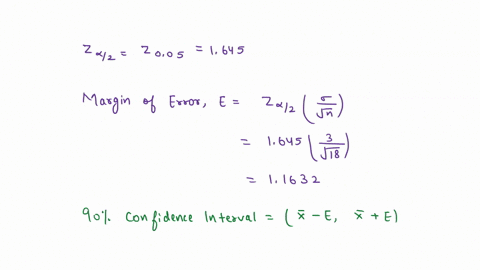 Z α/2 = Z 0.05 = 1.645
Margin of Error, E = Z α/2 (σ/√n)
= 1.645 (3/√18)
= 1.1632
90% Confidence Interval = (x̄ − E, x̄ + E)